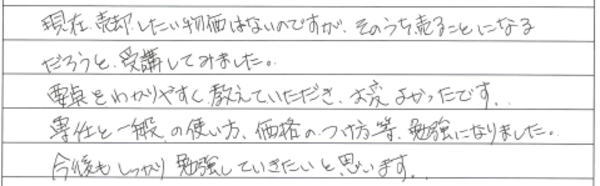 現在、売却したい物価はないのですが、そのうち売ることになる
だろうと、受講してみました。
要点をわかりやすく教えていただき、大変よかったです。
専任と一般の使い方、価格のつけ方等、勉強になりました。
今後もしっかり勉強していきたいと思います。